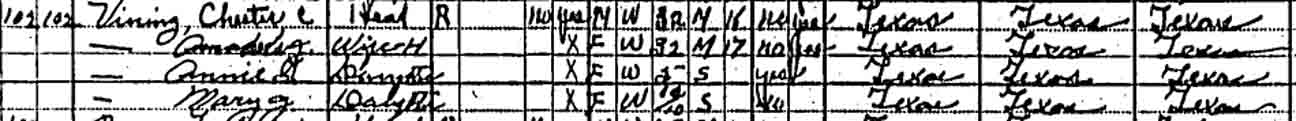 102 102 Vining, Chester C Head R no yes M W 32 M 16 no yes Texas Texas Texas
— Wife H X F W 32 M 17 no yes Texas Texas Texas
— Annie Daughter X F W S yes Texas Texas Texas
— Mary J. Daughter X F W S no Texas Texas Texas